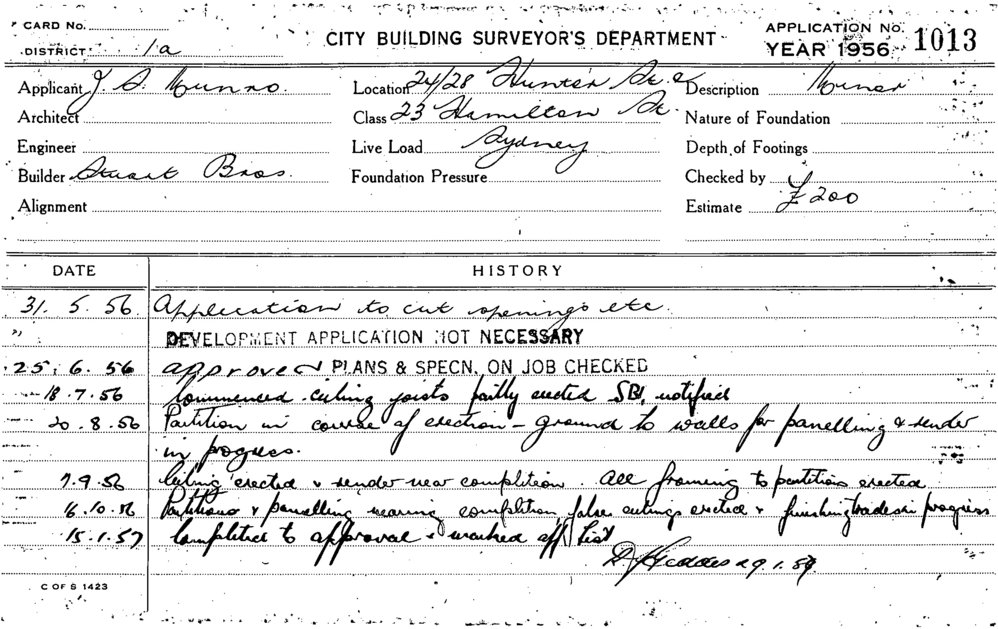 CARD No.
DISTRICT 1a
CITY BUILDING SURVEYOR'S DEPARTMENT
APPLICATION No. 1013
YEAR 1956
Applicant J. S. Munro. Location 24/28 Hunter St & Description Minor
Architect Class 23 Hamilton St. Nature of Foundation
Engineer Live Load Sydney Depth of Footings
Builder Stuart Bros. Foundation Pressure Checked by
Alignment Estimate £200
DATE HISTORY
31. 5. 56 Application to cut openings etc.
DEVELOPMENT APPLICATION NOT NECESSARY
25. 6. 56 approved PLANS & SPECN. ON JOB CHECKED
18.7.56 Commenced ceiling joists partly erected SBI notified
20.8.56 Partition in course of erection - ground to walls for panelling & render
in progress.
7.9.56 Ceiling erected & render near completion. All framing to partitions erected
16.10.56 Partitions & panelling nearing completion false ceilings erected & finishing trades in progress
15.1.57 Completed to approval & marked off list
29.1.57
C OF S 1423